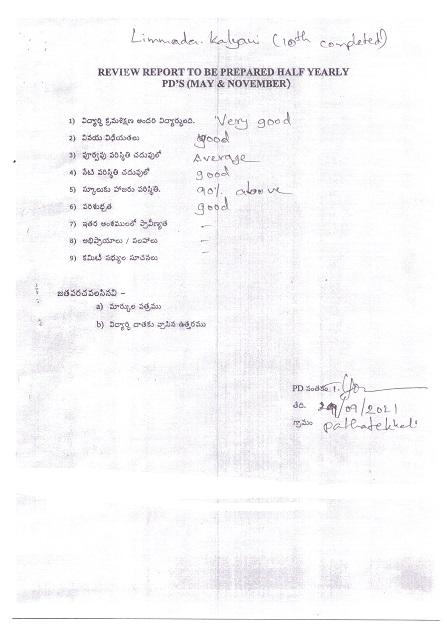 Limmada. Kalyani (10th completed)
REVIEW REPORT TO BE PREPARED HALF YEARLY
PD'S (MAY & NOVEMBER)
1) విద్యార్థి క్రమశిక్షణ అందరి విద్యార్థులది. Very good
2) వినయ విధేయతలు good
3) పూర్వపు పరిస్థితి చదువులో Average
4) నేటి పరిస్థితి చదువులో good
5) స్కూలుకు హాజరు పరిస్థితి. 90% above
6) పరిశుభ్రత good
7) ఇతర అంశములలో ప్రావీణ్యత –
8) అభిప్రాయాలు / సలహాలు –
9) కమిటీ సభ్యుల సూచనలు
జతపరచవలసినవి –
a) మార్కుల పత్రము
b) విద్యార్థి దాతకు వ్రాసిన ఉత్తరము
PD సంతకం
తేది. 29/09/2021
గ్రామం pathatekkali